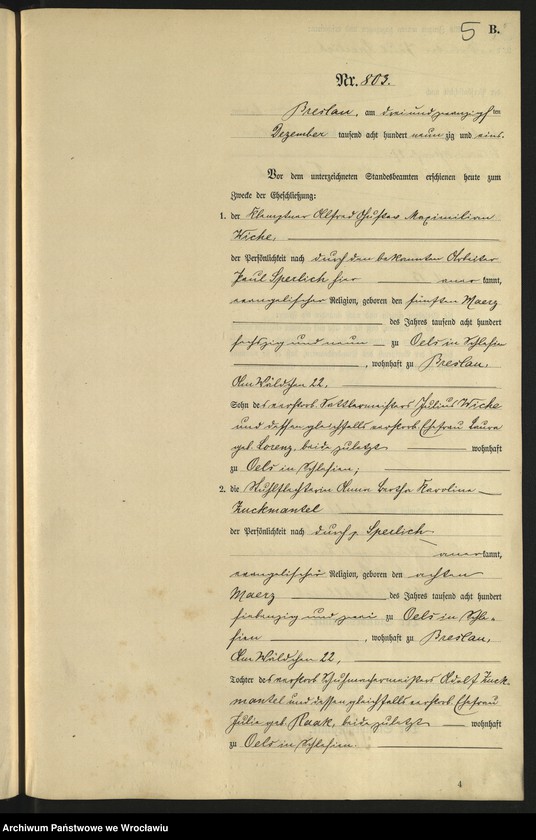 5 B.
Nr. 803.
Breslau, am dreiundzwanzigsten
Dezember tausend acht hundert neunzig und eins.
Vor dem unterzeichneten Standesbeamten erschienen heute zum
Zwecke der Eheschließung:
1. der Klemptner Alfred Gustav Maximilian
Wiche,
der Persönlichkeit nach durch den bekannten Arbeiter
Paul Sperlich hier anerkannt,
evangelischer Religion, geboren den fünften Maerz
des Jahres tausend acht hundert
sechszig und neun zu Oels in Schlesien
, wohnhaft zu Breslau,
Am Wäldchen 22,
Sohn des verstorb. Sattlermeisters Julius Wiche
und dessen gleichfalls verstorb. Ehefrau Laura
geb. Lorenz, beide zuletzt wohnhaft
zu Oels in Schlesien;
2. die Stuhlflechterin Anna Bertha Karoline
Zuckmantel
der Persönlichkeit nach durch p. Sperlich
anerkannt,
evangelischer Religion, geboren den achten
Maerz des Jahres tausend acht hundert
siebenzig und zwei zu Oels in Schle-
sien , wohnhaft zu Breslau,
Am Wäldchen 22,
Tochter des verstorb. Schuhmachermeisters Adolf Zuck-
mantel und dessen gleichfalls verstorb. Ehefrau
Julie geb. Raak, beide zuletzt wohnhaft
zu Oels in Schlesien.
4
Archiwum Państwowe we Wrocławiu